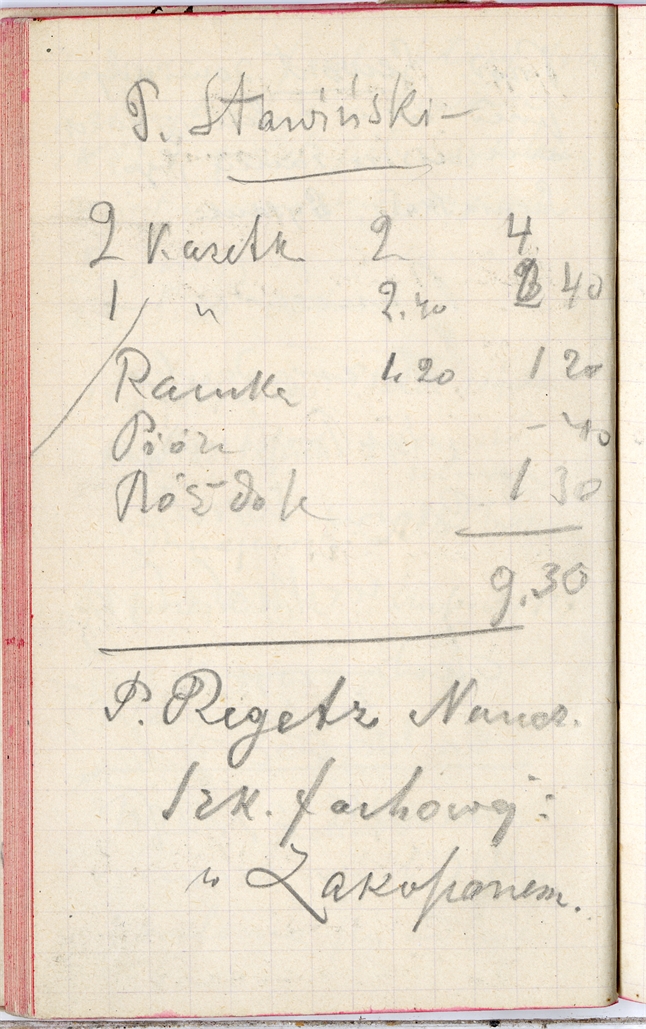 P. Stawiński -
2 Kasetk 2 4
1 " 2.40 2 40
Ramka 1.20 1 20
Piórn - 40
Nóż dok 1 30
9.30
P. Regetz Naucz.
Szk. fachowej:
w Zakopanem.